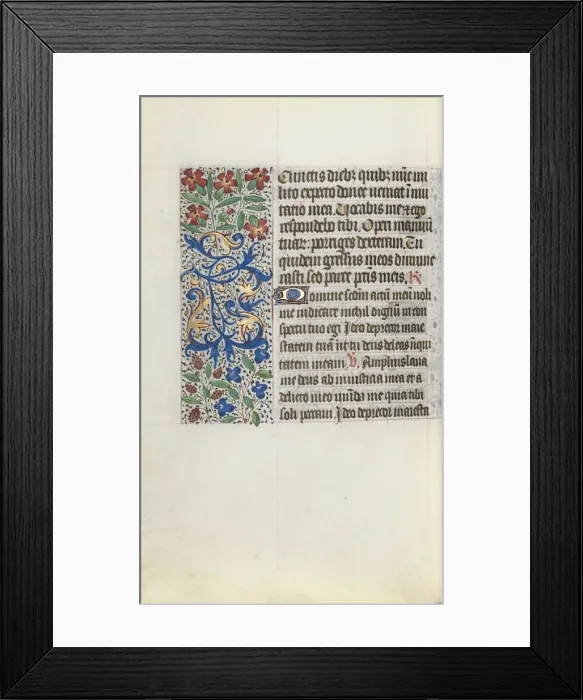 Cunctis diebz quibz nūc mi
lito expecto donec ueniat īmu
tatio mea. Vocabis me et ego
respondebo tibi. Operi manuum
tuaꝝ porriges dexteram. Tu
quidem gressus meos dinume
rasti sed parce pctis meis. R
Domine scdm actū meū noli
me iudicare nichil dignum in con
spectu tuo egi Ideo deprecor maie
statem tuā ut tu deus deleas iniqui
tatem meam. V. Amplius laua
me deus ab iniusticia mea et a
delicto meo munda me quia tibi
soli peccaui Ideo deprecor maiesta